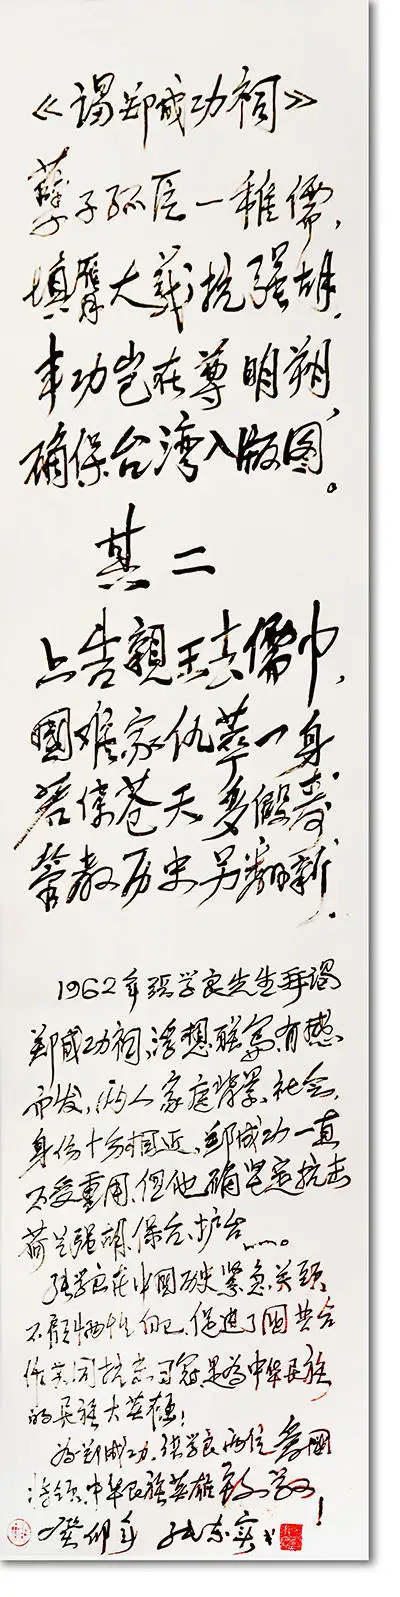 《谒郑成功祠》
孽子孤臣一稚儒，
填膺大義抗强胡，
丰功岂在尊明朔，
确保台湾入版图。
其二
上告親王去儒巾，
國难家仇萃一身
若使苍天多假寿
管教历史另翻新．
1962年張学良先生拜谒
郑成功祠、浮想联篇、有感
而发，两人家庭背景、社会、
身份十分相近、郑成功一直
不受重用、但他确坚定抗击
荷兰强胡、保台、护台……。
张学良在中国历史紧急关头，
不顧牺牲自己、促进了國共合
作共同抗击日寇是为中华民族
的民族大英雄！
为郑成功、张学良两位爱國
将领、中华民族英雄致敬！
癸卯年